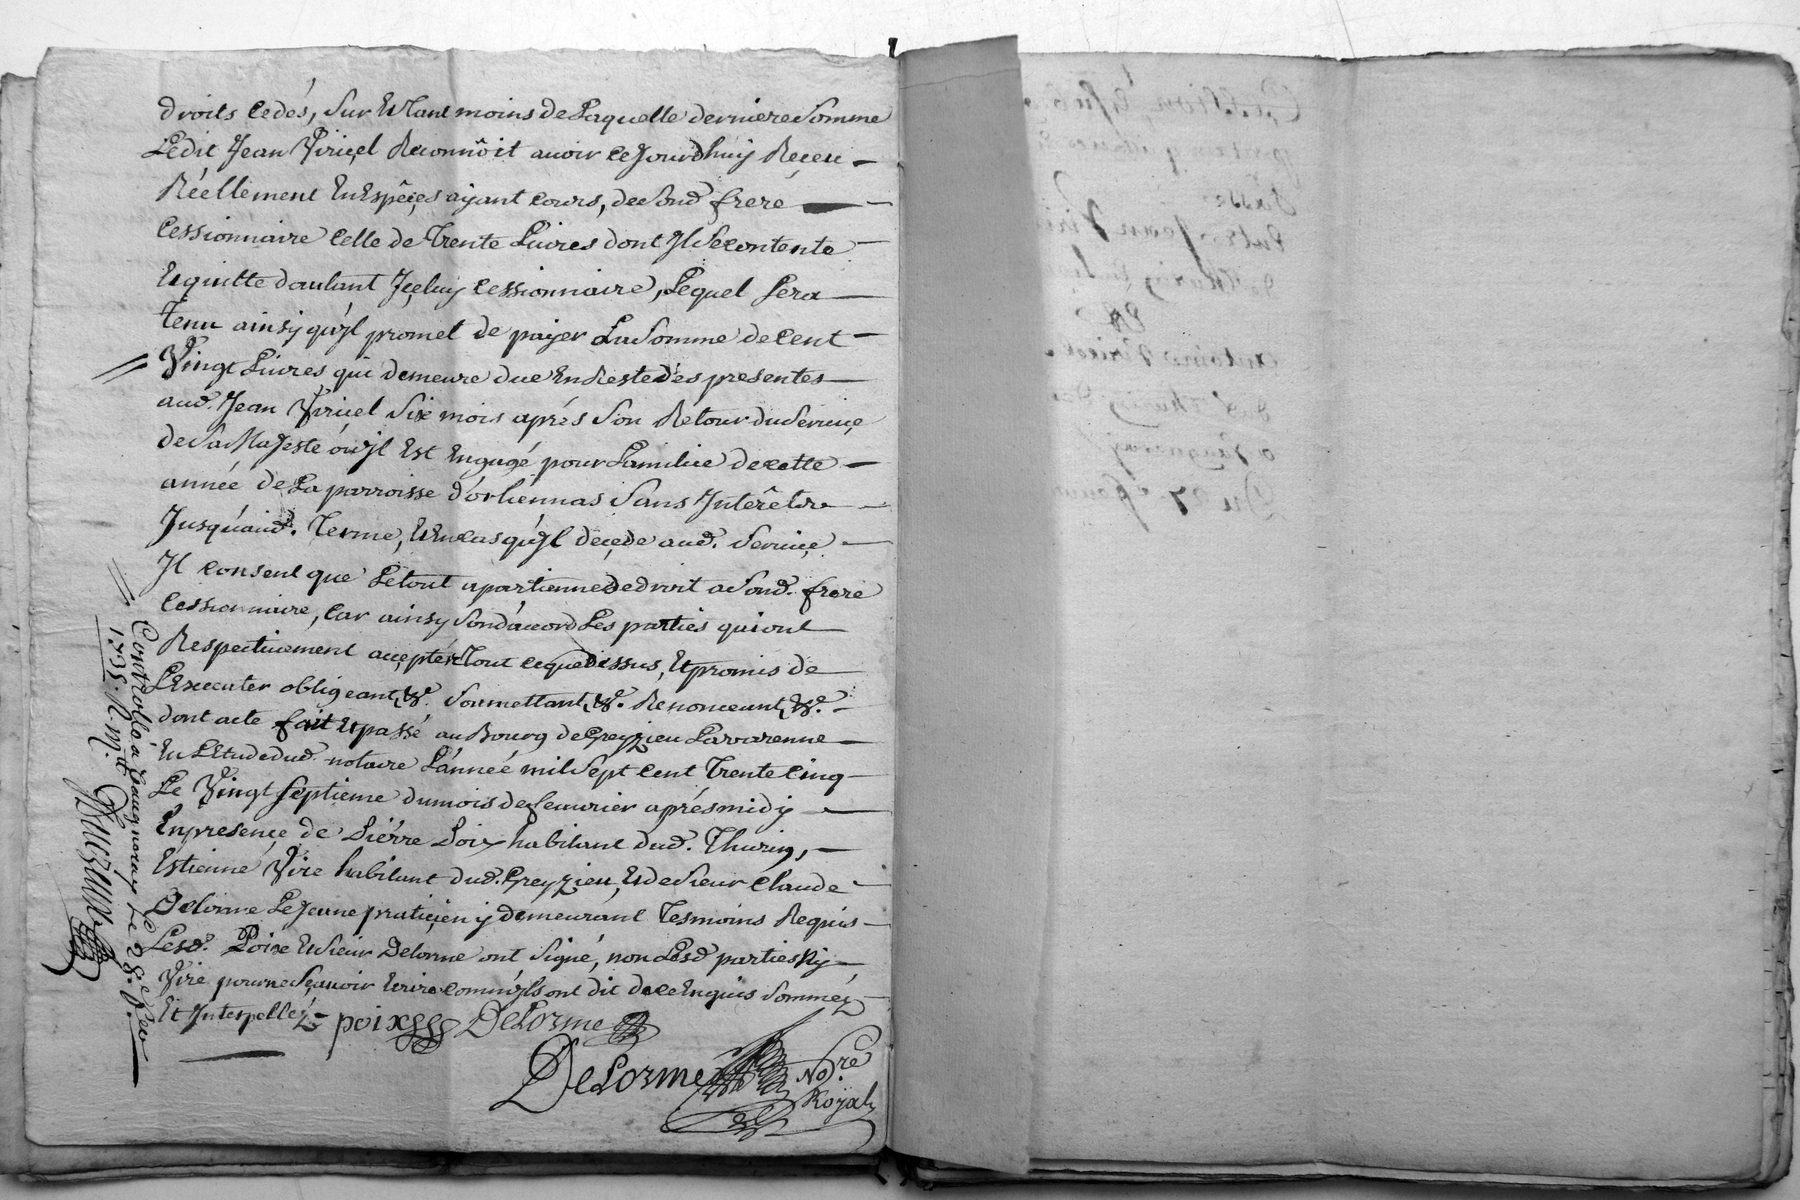 droits cedés, Sur Et tant moins de Laquelle derniere Somme
Ledit Jean Viricel Reconnôit avoir ce Jourdhuy Reçeu
Réellement En Espêçes ayant cours, de Sond. frere
Cessionnaire Celle de Trente Livres dont Il Se contente
Et quitte d'autant Içeluy Cessionnaire, Lequel Sera
Tenu ainsy qu'jl promet de payer La Somme de Cent
Vingt Livres qui demeure due En Reste dés presentes
aud. Jean Viricel Six mois aprés Son Retour du Serviçe
de Sa Majesté où jl Est Engagé pour La milice de cette
année de La parroisse d'orliennas Sans Interêt
Jusqu'aud. Terme, Et En cas qu'jl deçede aud. Serviçe
Il consent que Le tout apartienne de droit a Sond. frere
Cessionnaire, Car ainsy Sond'acord Les parties qui ont
Respectivement aççepté Tout ce que dessus, Et promis de
L'Executer obligeant, &c. Soumettant, &c. Renonceant, &c.
dont acte fait Et passé au Bourg de Greyzieu Lavarenne
En L'Etude dud. notaire L'anneé mil Sept Cent Trente Cinq
Le Vingt Septieme du mois de fevrier aprés midy
En presençe de Piérre Poix habitant dud. Thurin,
Estienne Vire habitant dud. Greyzieu, Et de Sieur Claude
Delorme Le Jeune pratiçien y demeurant Tesmoins Requis
Lesd. Poix Et Sieur Delorme ont Signé, non Lesd. parties Ny
Vire pour ne Sçavoir Ecrire comm'jls ont dit de ce Enquis Sommez
Et Interpellez
poix Delorme
DeLorme Nore.
Royal
Controllé a Vaugneray Le 28.e fev.
1735. R.